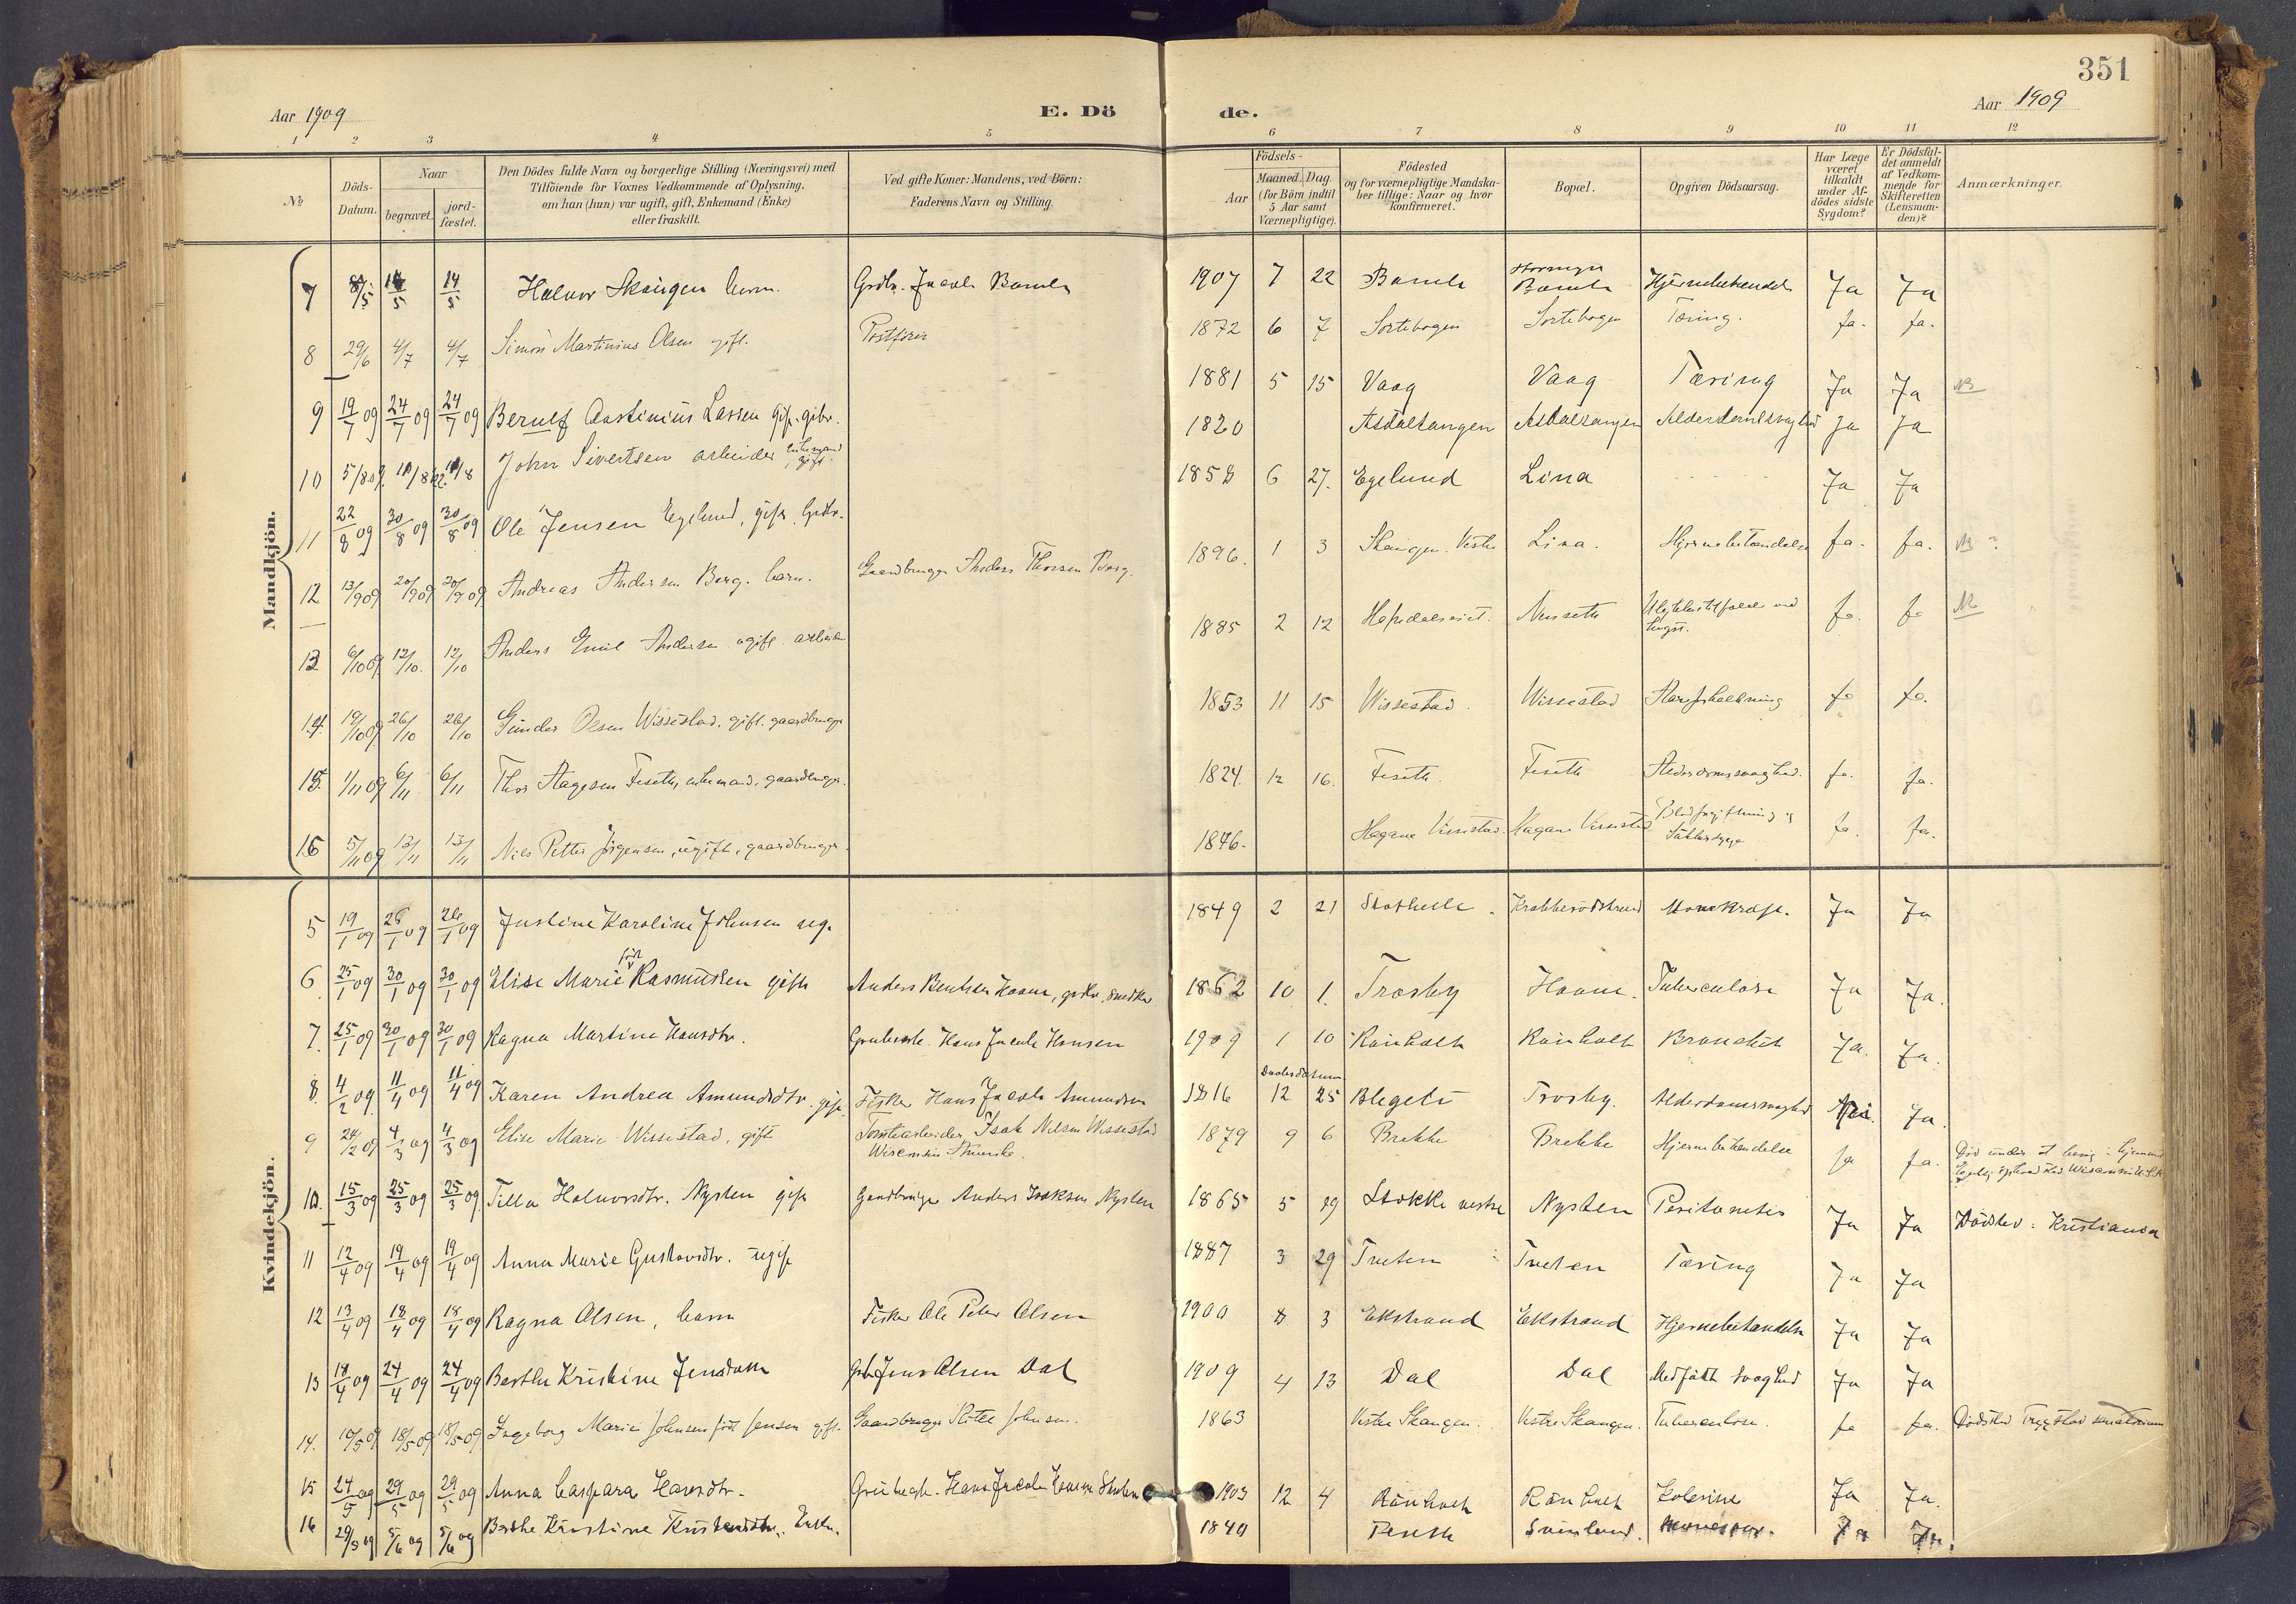 351
Aar 1909
E. Dö
de.
Aar 1909
1 2 3 4 5 6 7 8 9 10 11 12
No
Döds-Datum.
Naar
begravet.
jord-fæstet.
Den Dödes fulde Navn og borgerlige Stilling (Næringsvei) med
Tilföiende for Voxnes Vedkommende af Oplysning,
om han (hun) var ugift, gift, Enkemand (Enke)
eller fraskilt.
Ved gifte Koner: Mandens, ved Börn:
Faderens Navn og Stilling.
Födsels-
Aar
Maaned. Dag
(for Börn indtil
5 Aar samt
Værnepligtige).
Födested
og for værnepligtige Mandska-
ber tillige: Naar og hvor
konfirmeret.
Bopæl.
Opgiven Dödsaarsag.
Har Læge
været
tilkaldt
under Af-
dödes sidste
Sygdom?
Er Dödsfal-
det anmeldt
af Vedkom-
mende for
Skifteretten
(Lensman-
den)?
Anmærkninger.
Mandkjön.
7 8/5 14/5 14/5 Halvor Skougen barn. Grdbr. Jacob Bamle 1907 7 22 Bamle Bamle Hjernebetændelse Ja Ja
8 29/6 4/7 4/7 Simon Martinius Olsen gift. Postfører 1872 6 7 Sortebogen Sortebogen Tæring. Ja. Ja.
9 19/7 09 24/7 09 24/7 09 Berulf Aastinius Larsen gift. gbr. 1881 5 15 Vaag Vaag Tæring Ja Ja NB
10 5/8 09. 11/8 11/8 John Sivertsen arbeider Enkemand 1820 Asdaltangen Asdaltangen Alderdomssvaghed Ja Ja
11 22/8 09 30/8 09 30/8 09 Ole Jensen Egelund, gift, Grdbr. 1858 6 27. Egelund Lina Ja Ja
12 13/9 09 20/9 09 20/9 09 Andreas Andersen Berg. barn. Gaardbruger Anders Thorsen Berg. 1896. 1 3 Skaugen. Vestre Lina. Hjernebetændelse Ja. Ja. NB ?
13 6/10 09 12/10. 12/10 Anders Emil Andersen ugift arbeider 1885 2 12 Nusseth Ulykkestilfælde ved Ja. Ja NB
14. 19/10 09 26/10 26/10 Gunder Olsen Wissestad. gift. gaardbruger 1853 11 15 Wissestad. Wissestad Aareforkalkning Ja Ja.
15. 1/11 09 6/11 6/11 Thor Aagesen Feseth, enkemand, gaardbruger. 1824. 12 16. Feseth. Feseth Alderdomssvaghed. Ja. Ja.
16 5/11 09 13/11 13/11 Nils Petter Jørgensen, ugift, gaardbruger. 1846. Hagane Vissestad. Hagane Vissestad Blodforgiftning og Sukkersyge Ja. Ja.
Kvindekjön.
5 19/1 09 26/1 09 26/1 09 Justine Karoline Johnsen ug. 1849 2 21 Stathelle. Krabberødstrand Ja Ja
6 25/1 09 30/1 09 30/1 09 Elise Marie født Rasmussen gift Anders Bentsen Hovne, grdbr, smedker 1862 10 1. Trosby Hovne. Tuberculose Ja Ja.
7. 25/1 09 30/1 09 30/1 09 Ragna Martine Hansdtr. Grubearb. Hans Jacob Hansen 1909 1 10 Rønholt Rønholt Bronchit Ja. Ja.
8. 4/2 09 11/4 09 11/4 09 Karen Andrea Amundsdtr. gift. Fisker Hans Jacob Amundsen 1816 12 Daabsdatum 25 Blegeti Trosby. Alderdomssvaghed Nei. Ja.
9 24/2 09 4/3 09 4/3 09 Elise Marie Wissestad, gift Tomtearbeider Isak Nilsen Wissestad Wisconsin Amerika. 1879 9 6 Brekke Brekke Hjernebetændelse Ja Ja. Død under et besøg i hjemmet
10. 15/3 09 25/3 09 25/3 09 Tilla Halvorsdtr. Nysten gift Gaardbruger Anders Isaksen Nysten 1865 5 29 Stokke vestre Nysten Peritonitis Ja Ja Dødsted: Kristiania
11 12/4 09 19/4 09 19/4 09 Anna Marie Gustavsdtr. ugift 1887 3 29 Tveten Tveten Tæring Ja Ja
12 13/4 09 18/4 09 18/4 09 Ragna Olsen, barn Fisker Ole Peter Olsen 1900 8 3 Ekstrand Ekstrand Hjernebetændelse Ja Ja
13 18/4 09 24/4 09 24/4 09 Berthe Kristine Jensdatter Grb. Jens Olsen Dal 1909 4 13 Dal Dal Medfødt svaghed Ja Ja
14. 10/5 09 18/5 09 18/5 09 Ingeborg Marie Johnsen født Jensen gift. Gaardbruger Kittel Johnsen. 1863 Vestre Skaugen. Vestre Skaugen. Tuberculose. Ja Ja. Dødsted Tryggstad sanatorium
15 24/5 09 29/5 09 29/5 09 Anna Caspara Hansdtr. Grubearb. Hans Jacob Hansen 1903 12 4 Rønholt Rønholt Kolerine Ja Ja.
16 29/5 09 5/6 09 5/6 09 Berthe Kristine Kristensdtr. Enke. 1840 Feseth Svinlund. Ja Ja.